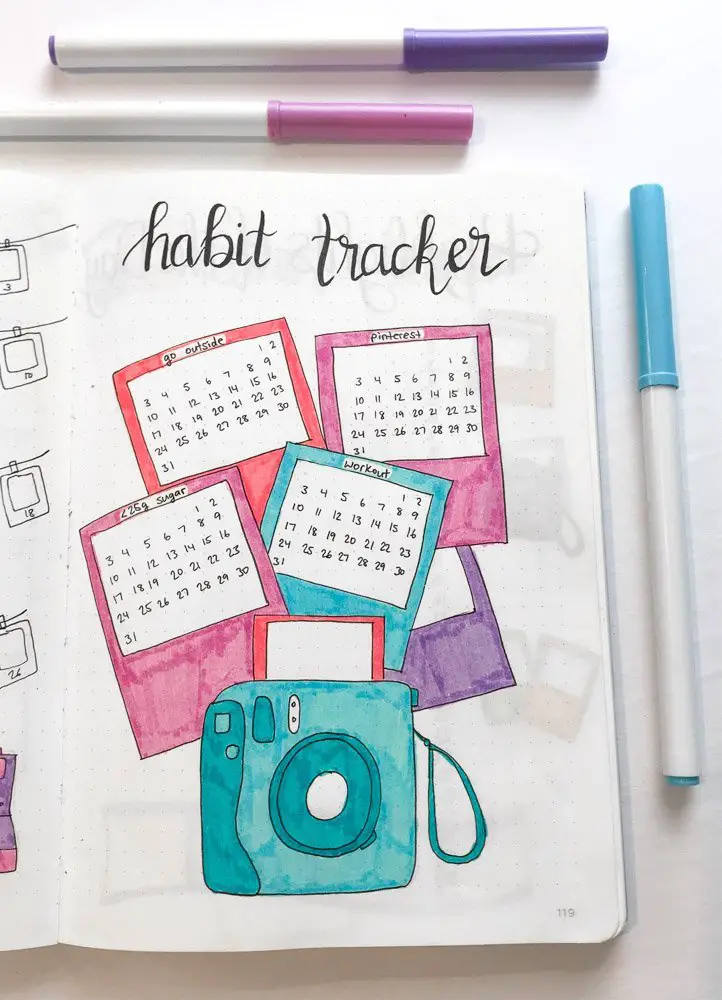 habit tracker
3
10
18
26
go outside
1 2
3 4 5 6 7 8 9
10 11 12 13 14 15 16
17 18 19 20 21 22 23
24 25 26 27 28 29 30
31
pinterest
1 2
3 4 5 6 7 8 9
10 11 12 13 14 15 16
17 18 19 20 21 22 23
24 25 26 27 28 29 30
31
workout
1 2
3 4 5 6 7 8 9
10 11 12 13 14 15 16
17 18 19 20 21 22 23
24 25 26 27 28 29 30
31
<25g sugar
1 2
3 4 5 6 7 8 9
10 11 12 13 14 15 16
17 18 19 20 21 22 23
24 25 26 27 28 29 30
31
119